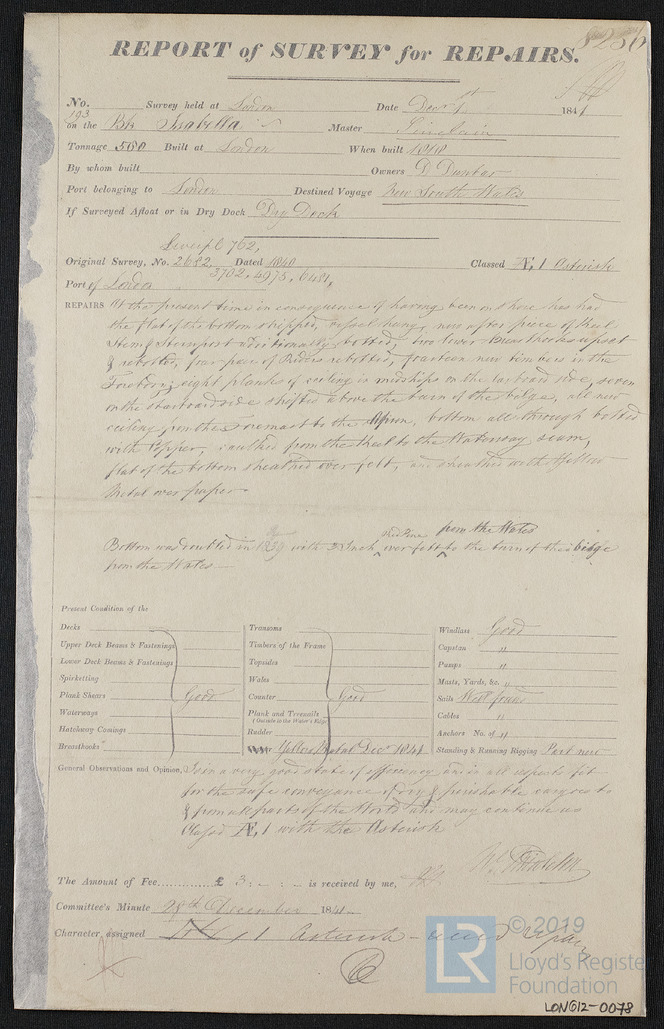 5256
REPORT of SURVEY for REPAIRS.
No. 193 Survey held at London Date Decr 1st 1841
on the Bk Isabella Master Sinclair
Tonnage 580 Built at London When built 1818
By whom built Owners D Dunbar
Port belonging to London Destined Voyage New South Wales
If Surveyed Afloat or in Dry Dock Dry Dock
Liverpl 762,
Original Survey, No. 2682, Dated 1840 Classed Æ, 1 Asterisk
3702, 4975, 6481,
Port of London
REPAIRS At the present time in consequence of having been on shore has had
the flat of the bottom stripped, vessel hung, new after piece of Keel
Stem & Sternpost additionally bolted, two lower Breasthooks upset
& rebolted, four pace of Riders rebolted, fourteen new timbers in the
Forebody, eight planks of ceiling in midships on the larboard side, seven
on the starboard side shifted above the turn of the bilge, all new
ceiling from the foremast to the Apron, bottom all through bolted
with Copper, caulked from the Keel to the Waterway seam,
flat of the bottom sheathed over felt, and sheathed with Yellow
Metal over paper
Bottom was doubled in 1839 with 2 Inch Red Pine over felt from the Wales to the turn of the bilge
from the Wales
Present Condition of the
Decks
Upper Deck Beams & Fastenings
Lower Deck Beams & Fastenings
Spirketting
Plank Shears Good
Waterways
Hatchway Comings
Breasthooks
Transoms
Timbers of the Frame
Topsides
Wales
Counter Good
Plank and Treenails
(Outside to the Water's Edge)
Rudder
Yellow Metal Decr 1841
Windlass Good
Capstan "
Pumps "
Masts, Yards, &c. "
Sails Well found
Cables "
Anchors No. of "
Standing & Running Rigging Part new
General Observations and Opinion, Is in a very good state of efficiency and in all respects fit
for the safe conveyance of dry & perishable cargoes to
& from all parts of the World and may continue as
Classed Æ, 1 with the Asterisk
The Amount of Fee............. £ 3: - : - is received by me,
Committee's Minute 28th December 1841.
Character assigned 1 Asterisk
© 2019
LR
Lloyd's Register
Foundation
LON612-0078